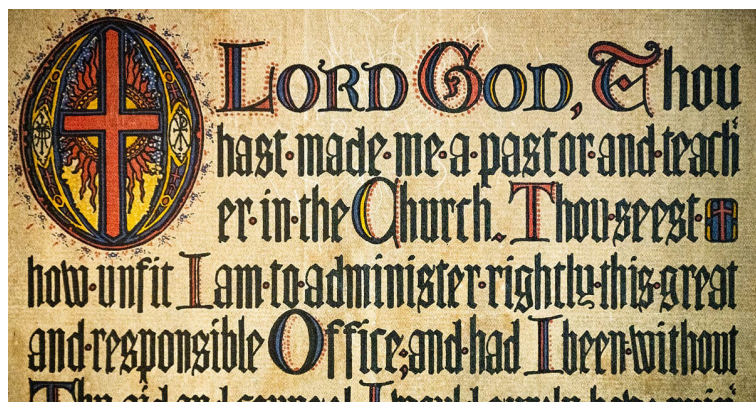 O LORD GOD, Thou
hast·made·me·a·pastor·and·teach
er·in·the Church. Thou·seest·
how·unfit I am·to·administer·rightly·this·great
and·responsible Office;·and·had I been·without
Thy aid and counsel I would surely have